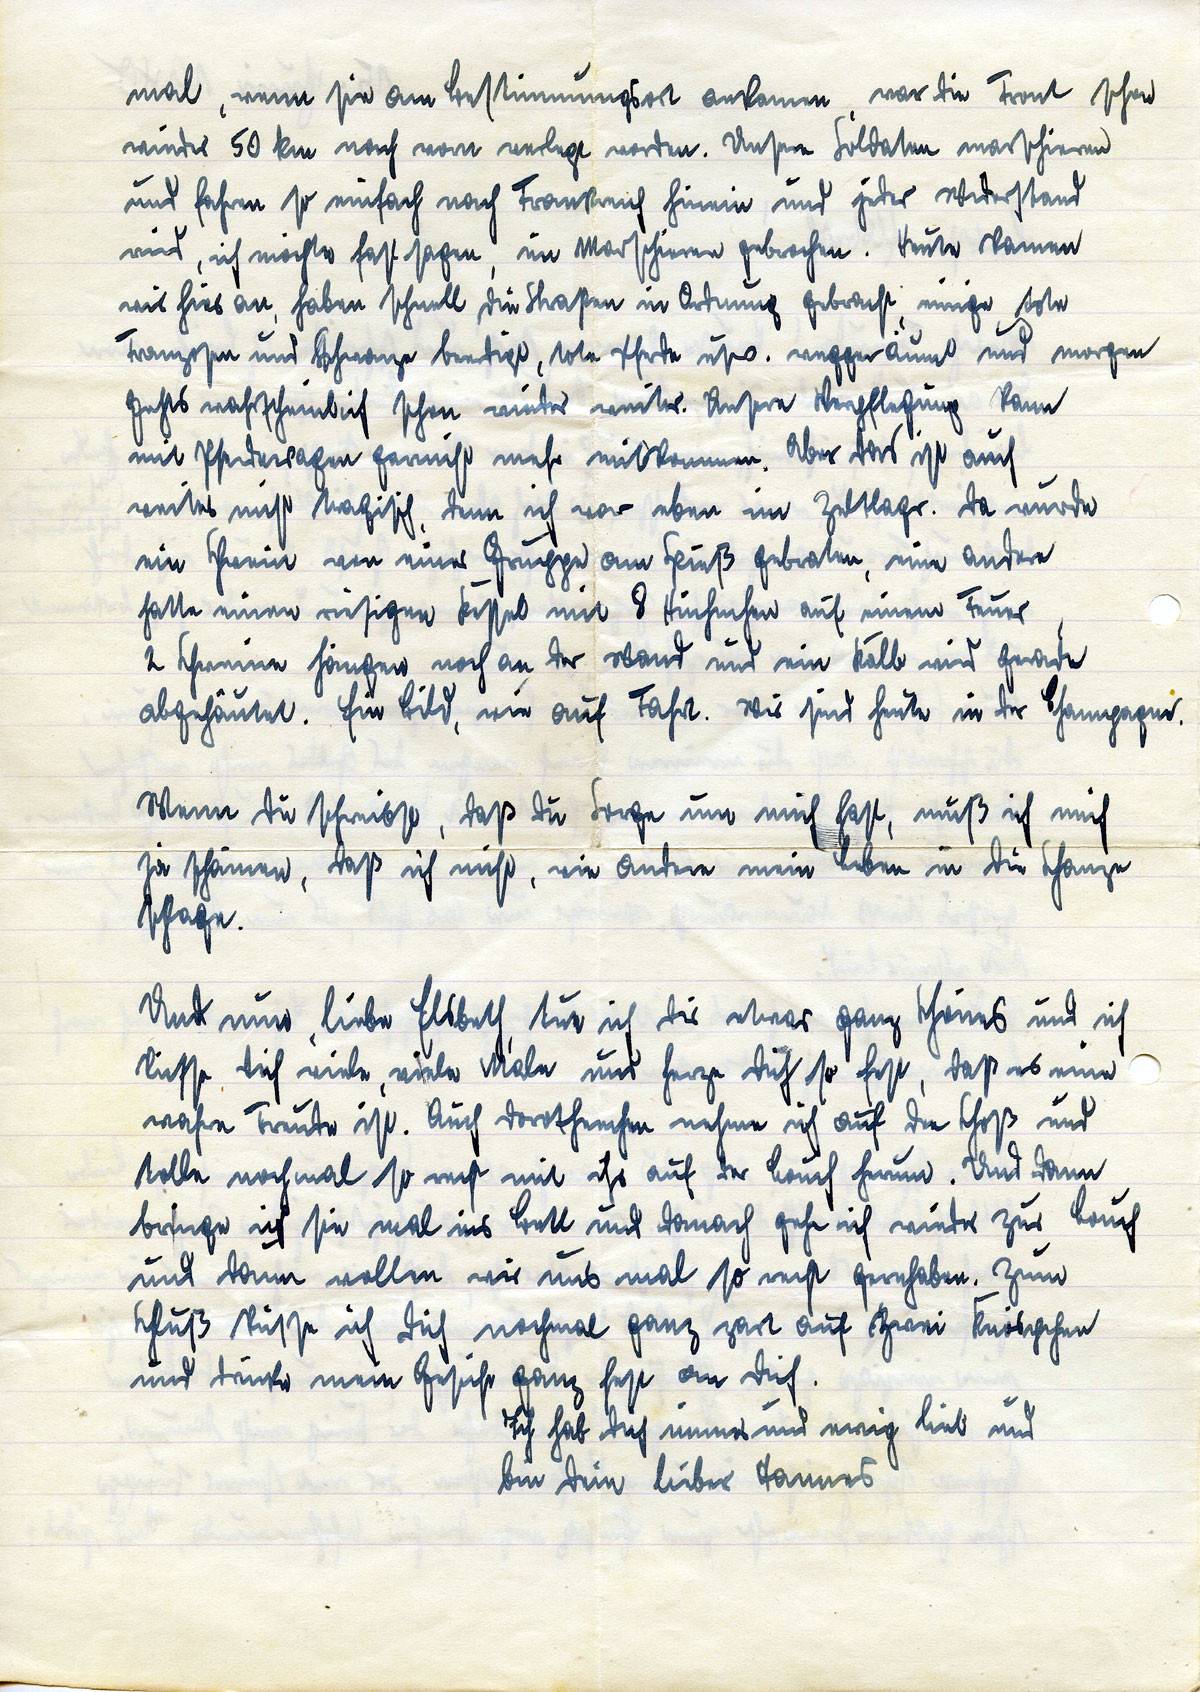 mal, wenn sie am Bestimmungsort ankamen, war die Front schon
wieder 50 km nach vorn verlegt worden. Unsere Soldaten marschieren
und fahren so einfach nach Frankreich hinein und jeder Widerstand
wird, ich möchte fast sagen, im Marschieren gebrochen. Heute kamen
wir hier an, haben schnell die Straßen in Ordnung gebracht, einige tote
Franzosen und Schwarze beerdigt, tote Pferde usw. weggeräumt und morgen
gehts wahrscheinlich schon wieder weiter. Unsere Verpflegung kann
mit Pferdewagen garnicht mehr mitkommen. Aber das ist auch
weiter nicht tragisch, denn ich war eben im Zeltlager. Da wurde
ein Schwein von einer Gruppe am Spieß gebraten, eine andere
hatte einen riesigen Kessel mit 8 Hühnchen auf einem Feuer,
2 Schweine hängen noch an der Wand und ein Kalb wird gerade
abgehäutet. Ein Bild, wie auf Fahrt. Wir sind heute in der Champagne.
Wenn Du schreibst, daß Du Sorge um mich hast, muß ich mich
ja schämen, daß ich nicht, wie andere mein Leben in die Schanze
schlage.
Und nun, liebe Elsbeth, tue ich Dir etwas ganz Schönes und ich
küsse Dich viele, viele Male und herze Dich so fest, daß es eine
wahre Freude ist. Auch Dorothenchen nehme ich auf den Schoß und
tolle nochmal so recht mit ihr auf der Couch herum. Und dann
bringe ich sie mal ins Bett und danach gehe ich wieder zur Couch
und dann wollen wir uns mal so recht gernhaben. Zum
Schluß küsse ich Dich nochmal ganz zart auf zwei Knöspchen
und drücke mein Gesicht ganz fest an Dich.
Ich hab Dich immer und ewig lieb und
bin Dein lieber Hannes